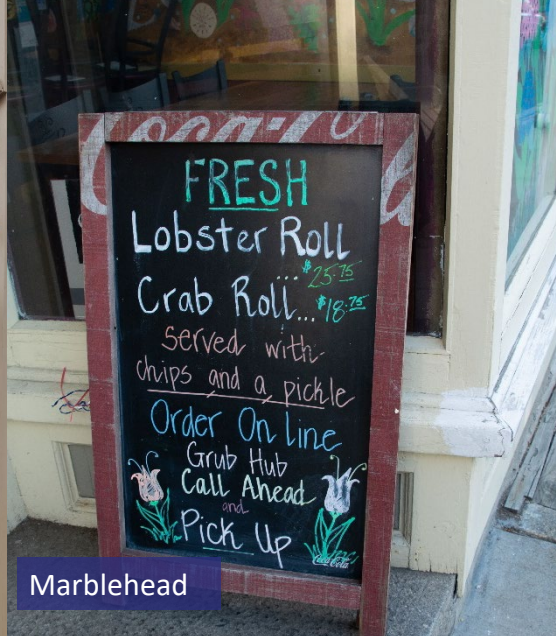 Coca-Cola
FRESH
Lobster Roll
... $25.75
Crab Roll... $18.75
Served with
chips and a pickle
Order On line
Grub Hub
Call Ahead
and
Pick Up
Coca-Cola
Marblehead